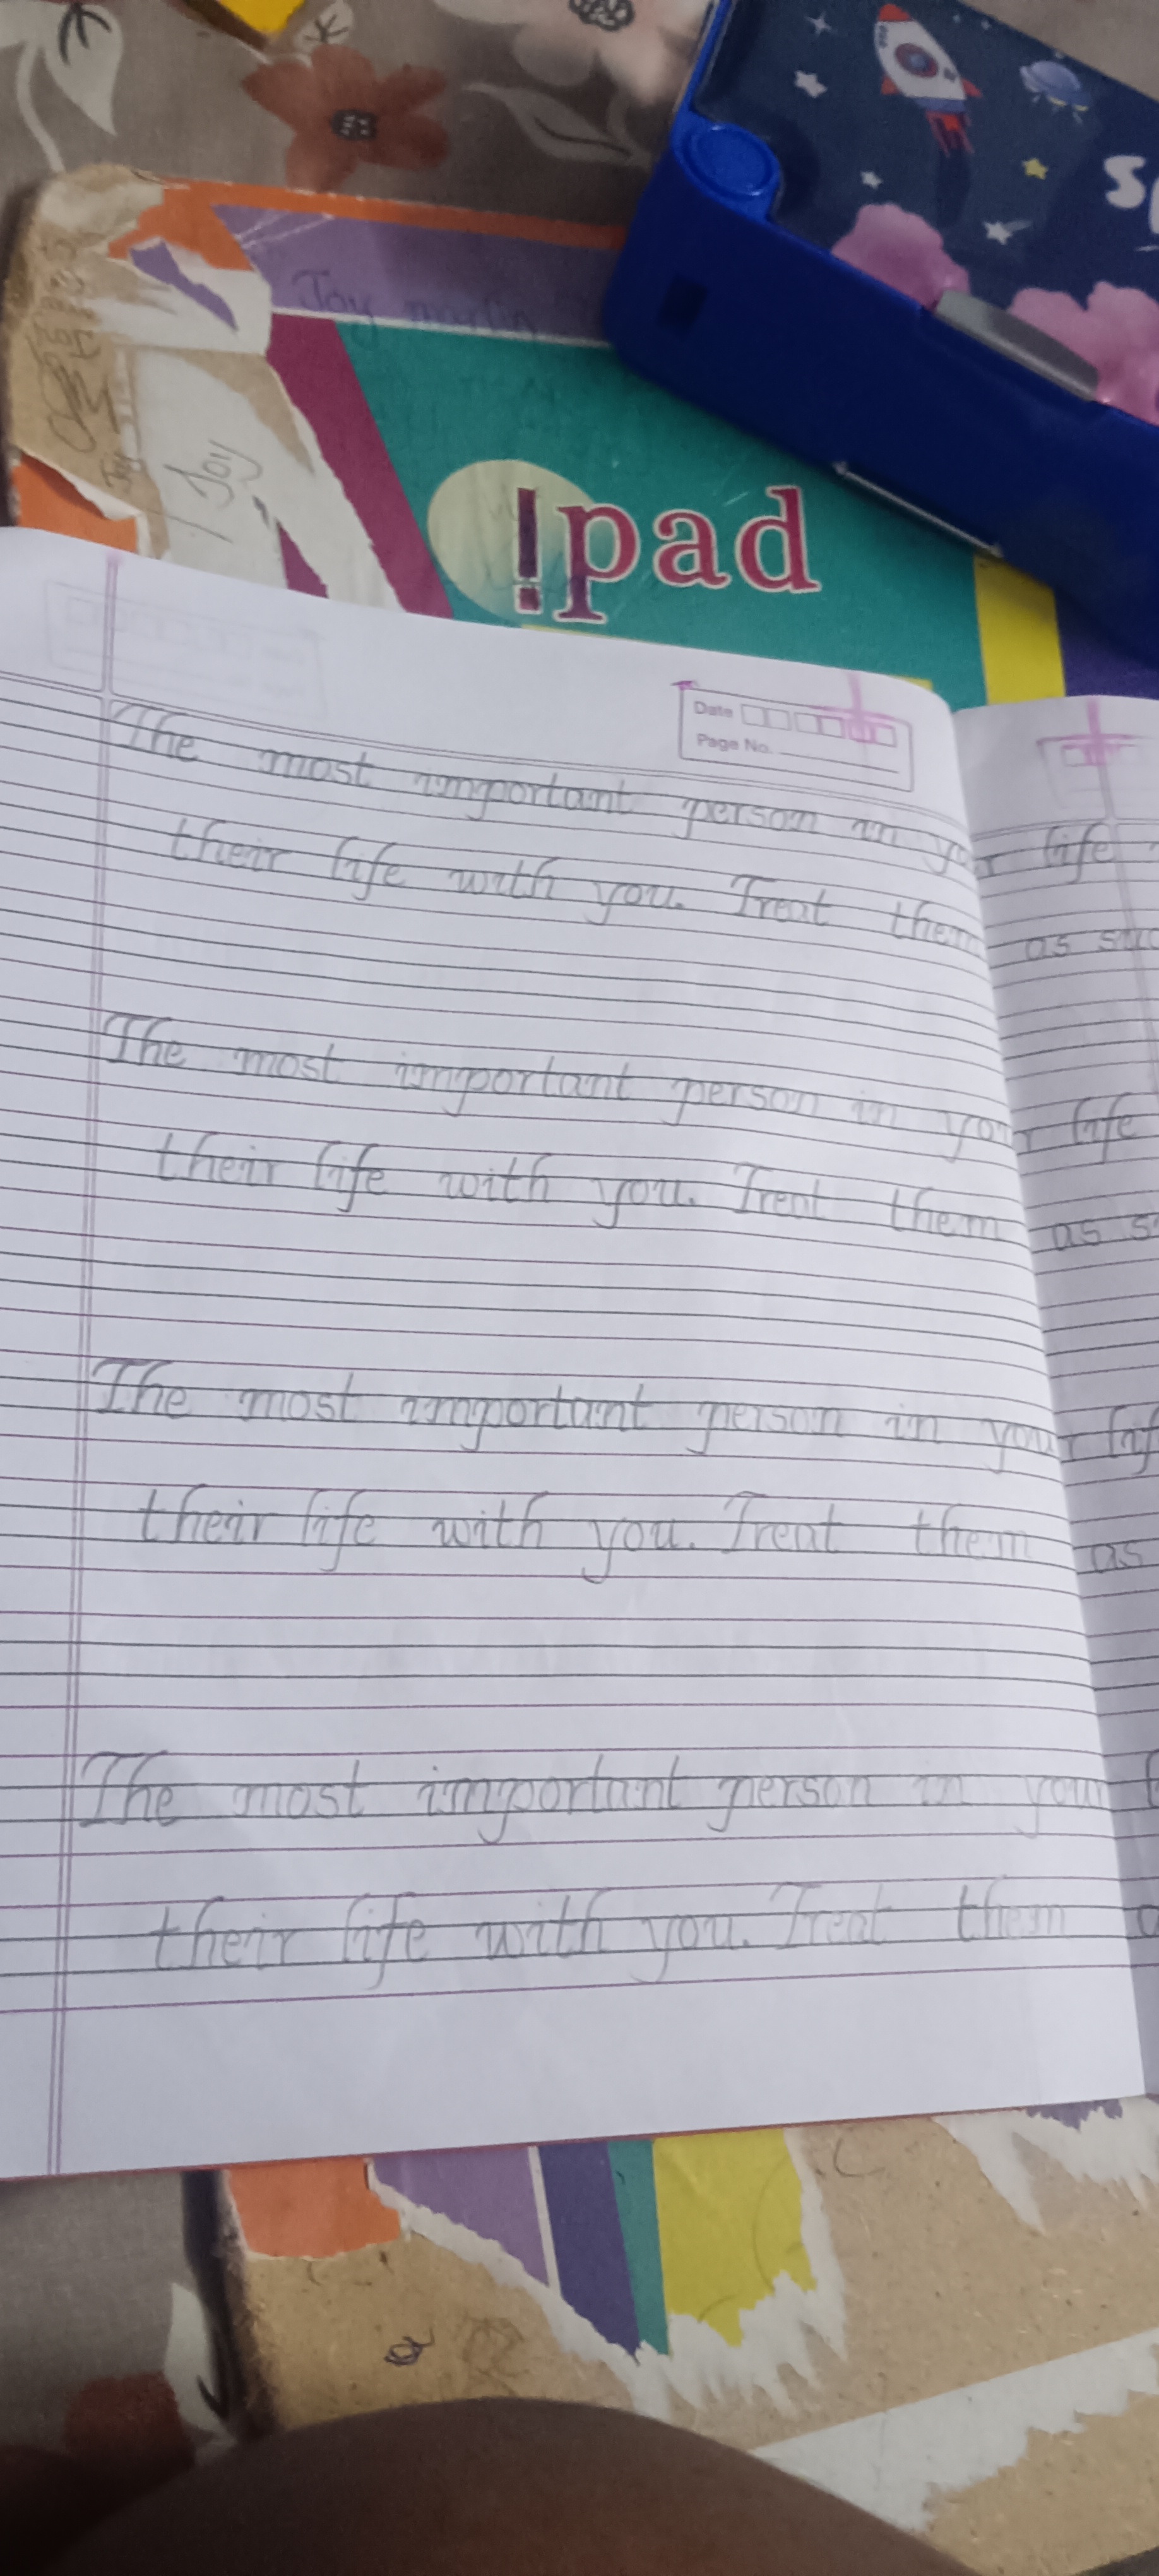 Joy
Joy
ipad
Date
Page No.
The most important person in your life
their life with you. Treat them as
The most important person in your life
their life with you. Treat them as s
The most important person in your lif
their life with you. Treat them as
The most important person in your
their life with you. Treat them